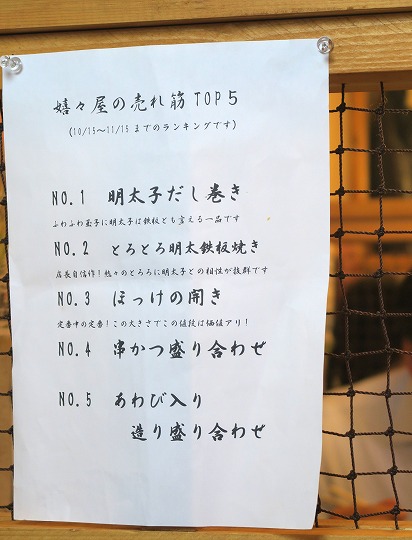 嬉々屋の売れ筋TOP5
(10/15～11/15までのランキングです)
NO.1 明太子だし巻き
ふわふわ玉子に明太子は鉄板とも言える一品です
NO.2 とろとろ明太鉄板焼き
店長自信作!熱々のとろろに明太子との相性が抜群です
NO.3 ほっけの開き
定番中の定番!この大きさでこの値段は価値アリ!
NO.4 串かつ盛り合わせ
NO.5 あわび入り
造り盛り合わせ